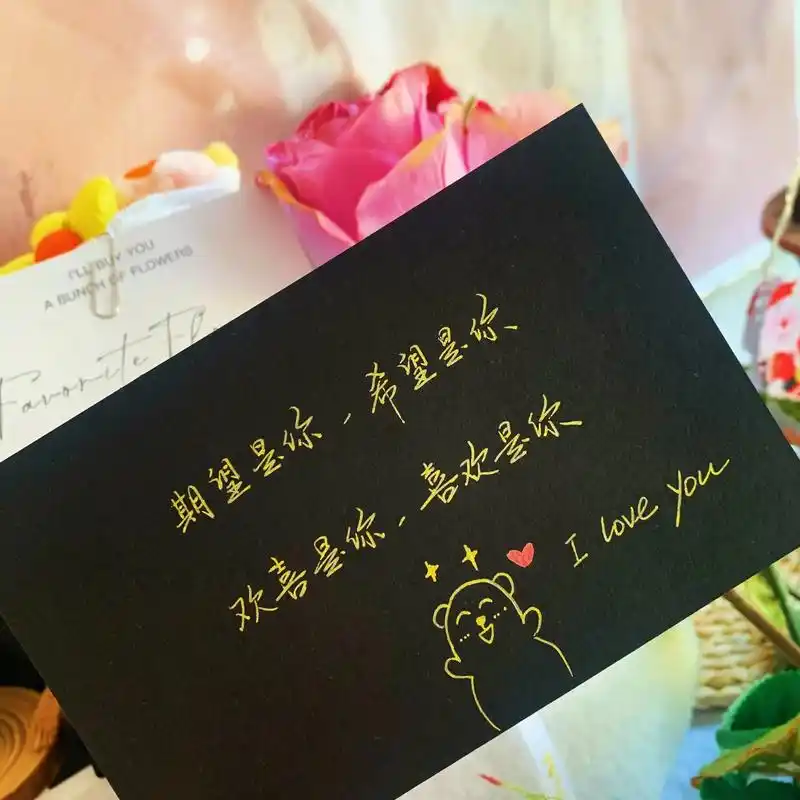 I'LL BUY YOU
A BUNCH OF FLOWERS
Favorite
期望是你，希望是你
欢喜是你，喜欢是你
I love you